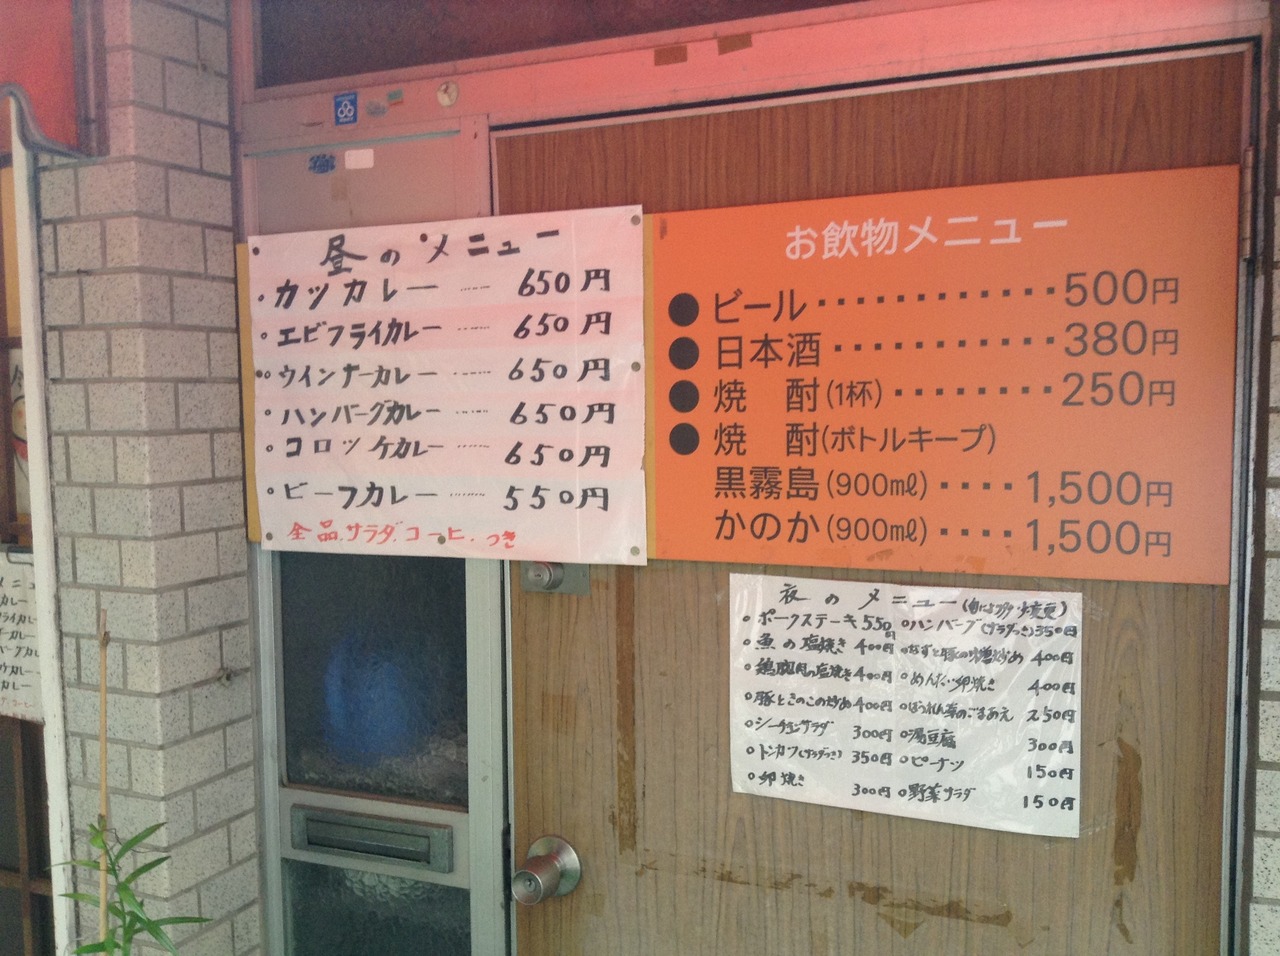 昼のメニュー
・カツカレー …… 650円
・エビフライカレー …… 650円
・ウインナーカレー …… 650円
・ハンバーグカレー …… 650円
・コロッケカレー …… 650円
・ビーフカレー …… 550円
全品.サラダ.コーヒ.つき
お飲物メニュー
●ビール・・・・・・・・・・・・500円
●日本酒・・・・・・・・・・・380円
●焼　酎(1杯)・・・・・・・・250円
●焼　酎(ボトルキープ)
黒霧島(900㎖)・・・・1,500円
かのか(900㎖)・・・・1,500円
夜のメニュー
○ポークステーキ 550円 ○ハンバーグ(サラダつき)350円
○魚の塩焼き 400円 ○なすと豚の味噌炒め 400円
○鶏胸肉の塩焼き 400円 ○めんたい卵焼き 400円
○豚ときのこの炒め 400円 ○ほうれん草のごまあえ 250円
○シーチキンサラダ 300円 ○湯豆腐 300円
○トンカツ(サラダつき) 350円 ○ピーナツ 150円
○卵焼き 300円 ○野菜サラダ 150円